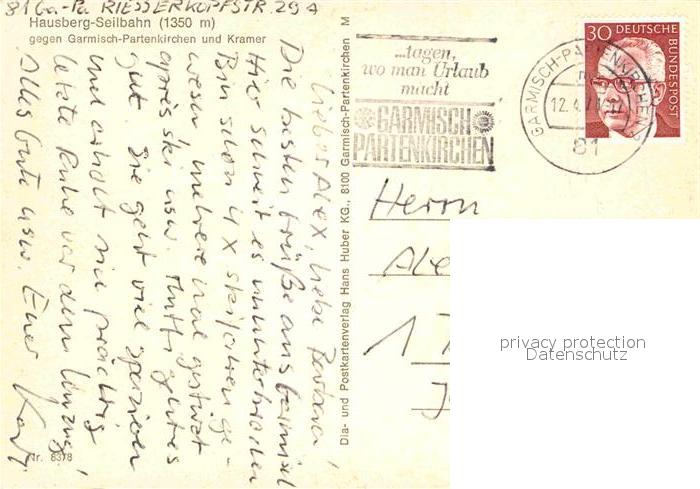 81 Ga.-Pa. RIESSERKOPFSTR. 29A
Hausberg-Seilbahn (1350 m)
gegen Garmisch-Partenkirchen und Kramer
Lieber Alex, liebe Barbara!
Die besten Grüße aus Garmisch
Hier schneit es ununterbrochen
Bin schon 4 x skifahren ge-
wesen mehrere mal gestürzt
après ski usw. Mutti geht es
gut. Sie geht viel spazieren
und erholt sich prächtig
letzte Ruhe vor dem Umzug!
Alles Gute usw. Euer
Nr. 8378
Dia- und Postkartenverlag Hans Huber KG., 8100 Garmisch-Partenkirchen M
...tagen,
wo man Urlaub
macht
GARMISCH
PARTENKIRCHEN
GARMISCH-PARTENKIRCHEN
12.4.71-17
81
30 DEUTSCHE
BUNDESPOST
Herrn
Ale
1
privacy protection
Datenschutz